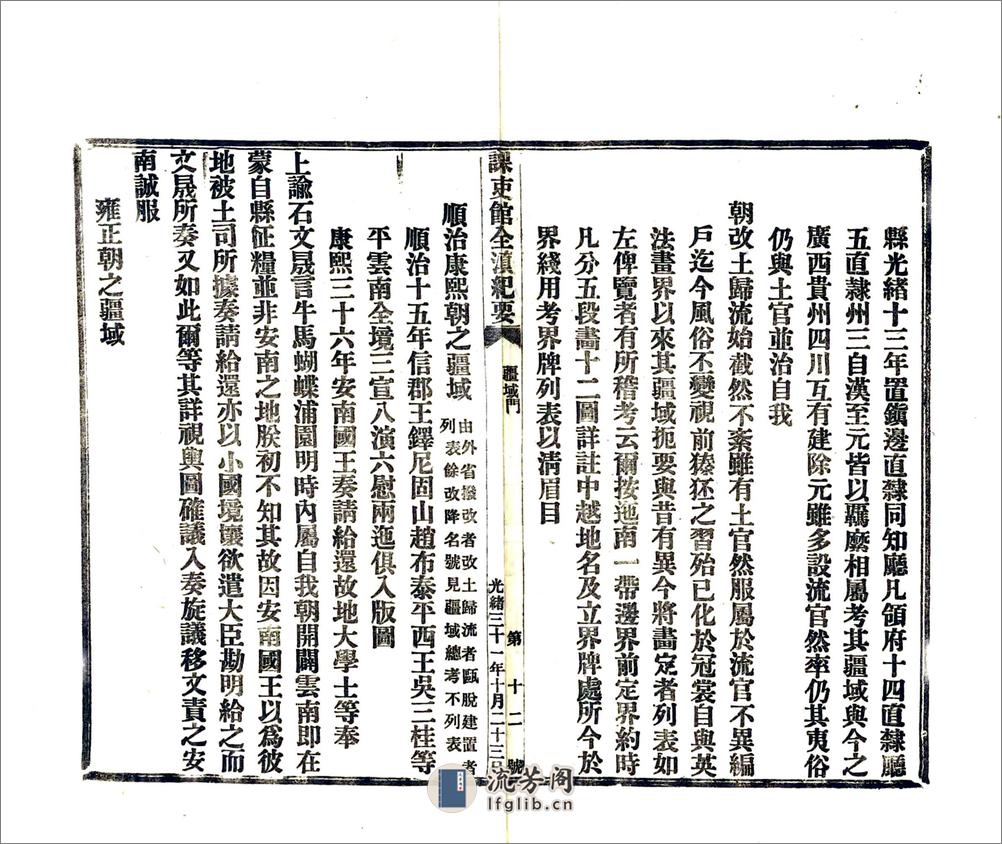 縣光緒十三年置鎮邊直隸同知廳凡領府十四直隸廳
五直隸州三自漢至元皆以羈縻相屬考其疆域與今之
廣西貴州四川互有建除元雖多設流官然率仍其夷俗
仍與土官並治自我
朝改土歸流始截然不紊雖有土官然服屬於流官不異編
戶迄今風俗不變視前獉狉之習殆已化於冠裳自與英
法畫界以來其疆域扼要與昔有異今將畫定者列表如
左俾覽者有所稽考云爾按迤南一帶邊界前定界約時
凡分五段畫十二圖詳註中越地名及立界牌處所今於
界綫用考界牌列表以清眉目
課吏館全滇紀要
疆域門
第十二號
光緒三十一年十月二十三日
順治康熙朝之疆域
由外省撥改者改土歸流者甌脫建置者
列表餘改降名號見疆域總考不列表
順治十五年信郡王鐸尼固山趙布泰平西王吳三桂等
平雲南全境三宣八演六慰兩迤俱入版圖
康熙三十六年安南國王奏請給還故地大學士等奉
上諭石文晟言牛馬蝴蝶浦園明時內屬自我朝開闢雲南即在
蒙自縣征糧並非安南之地朕初不知其故因安南國王以爲彼
地被土司所據奏請給還亦以小國境壤欲遣大臣勘明給之而
文晟所奏又如此爾等其詳視輿圖確議入奏旋議移文責之安
南誠服
雍正朝之疆域
流芳阁
lfglib.cn